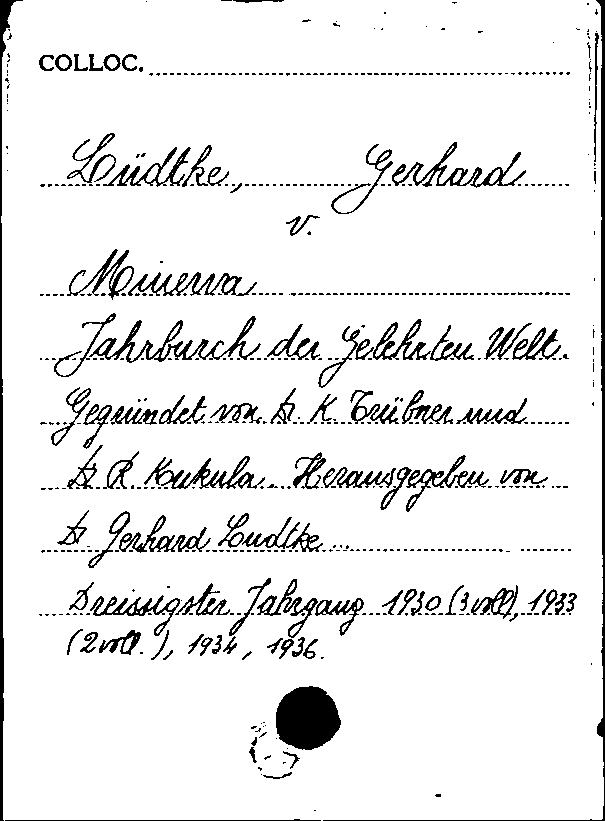 COLLOC.
Lüdtke, Gerhard
v.
Minerva
Jahrburch der Gelehrten Welt.
Gegründet von Dr. K. Trübner und
Dr R. Kukula. Herausgegeben von
Dr. Gerhard Ludtke...
Dreissigster Jahrgang 1930 (3 voll), 1933
(2 voll.), 1934, 1936.